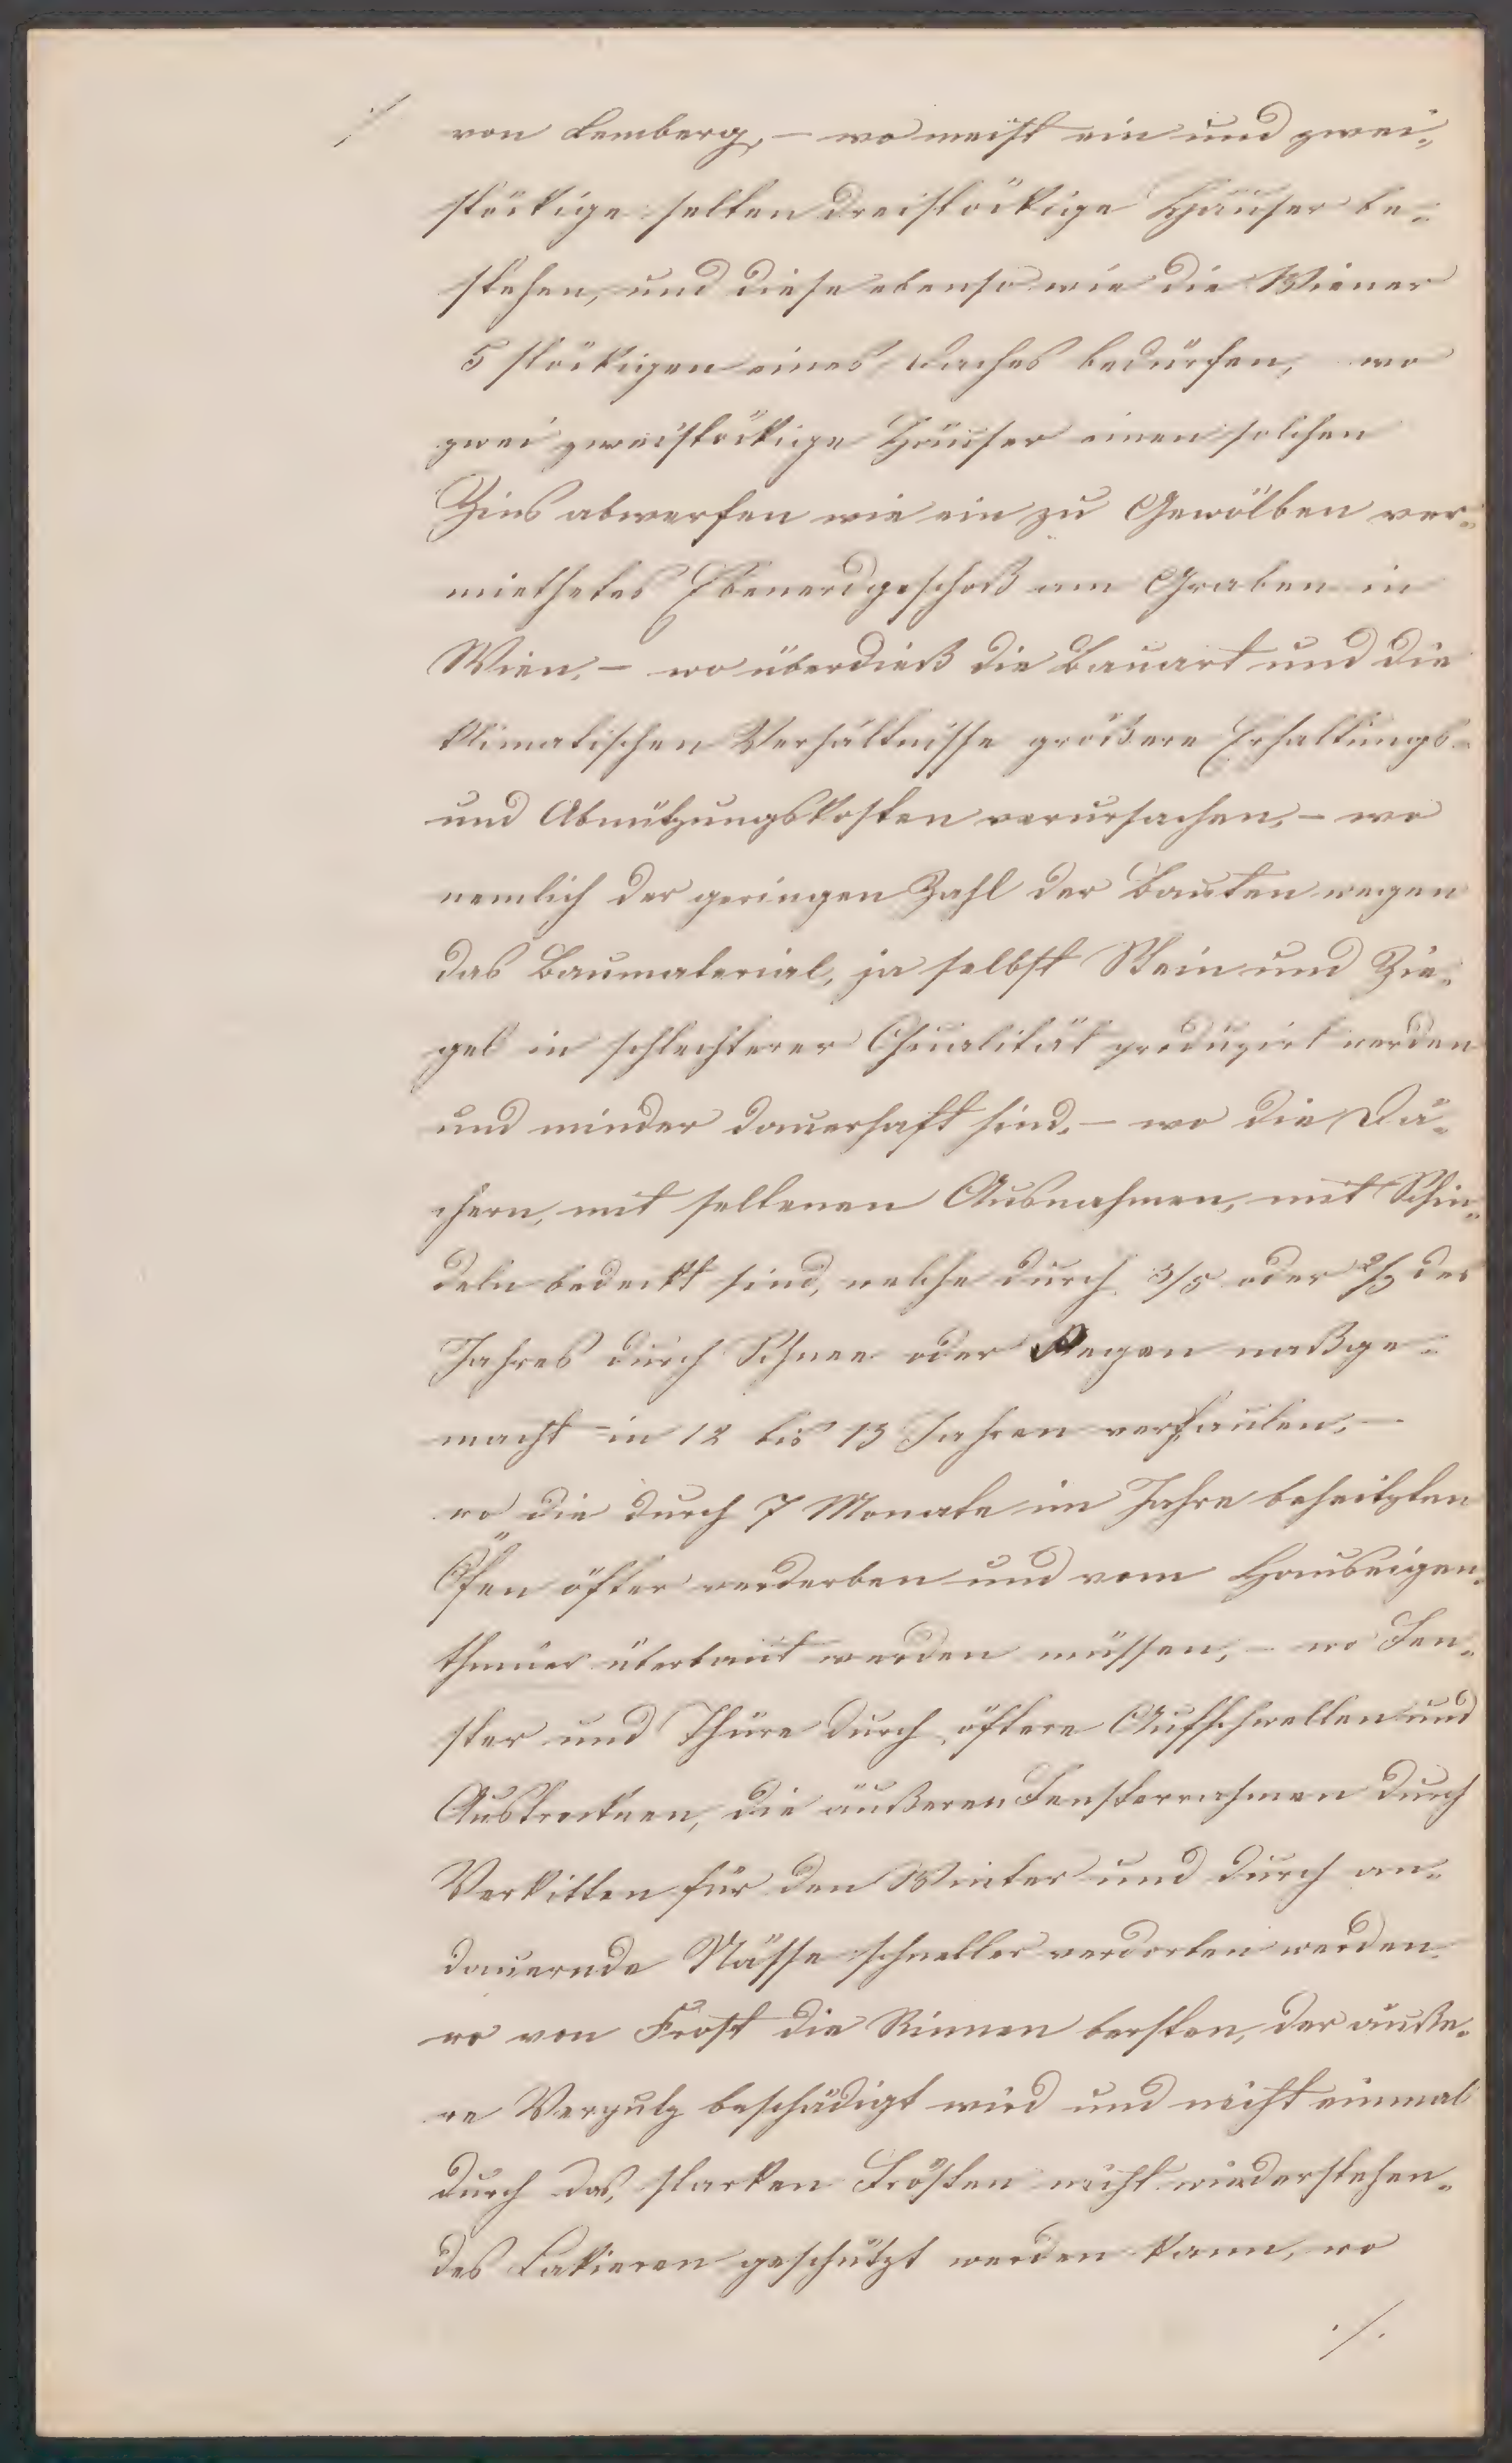 ./. von Lemberg, – wo meist ein und zwei-
stöckige selten dreistöckige Häuser be-
stehen, und diese ebenso wie die Wiener
5 stöckigen eines Daches bedürfen, wo
zwei zweistöckige Häuser einen solchen
Zins abwerfen wie ein zu Gewölben ver-
miethetes Ebenerdgeschoß am Graben in
Wien, – wo überdieß die Bauart und die
klimatischen Verhältnisse größere Erhaltungs-
und Abnützungskosten verursachen, – wo
nemlich der geringen Zahl der Bauten wegen
das Baumaterial, ja selbst Stein und Zie-
gel in schlechterer Qualität produzirt werden
und minder dauerhaft sind, – wo die Dä-
chern, mit seltenen Ausnahmen, mit Schin-
deln bedeckt sind, welche durch 3/5 oder 2/3 des
Jahres durch Schnee oder Regen naßge-
macht – in 12 bis 13 Jahren verfaulen, –
wo die durch 7 Monate im Jahre beheitzten
Öfen öfter verderben und vom Hauseigen-
thümer überbaut werden müssen, – wo Fen-
ster und Thüre durch öftere Aufschwellen und
Austrocknen, die äußeren Fensterrahmen durch
Verkitten für den Winter und durch an-
dauernde Nässe schneller verdorben werden
wo von Frost die Rinnen bersten, der äuße-
re Verputz beschädigt wird und nicht einmal
durch das, starken Frösten nicht wiederstehen-
des Lakieren geschützt werden kann, wo
./.